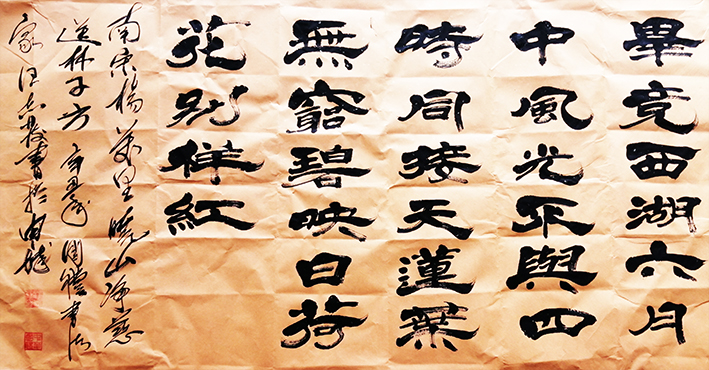 畢竟西湖六月
中風光不與四
時同接天蓮葉
無窮碧映日荷
花別样紅
南宋楊萬里曉出淨慈
送林子方 辛丑 體書法
家 書於